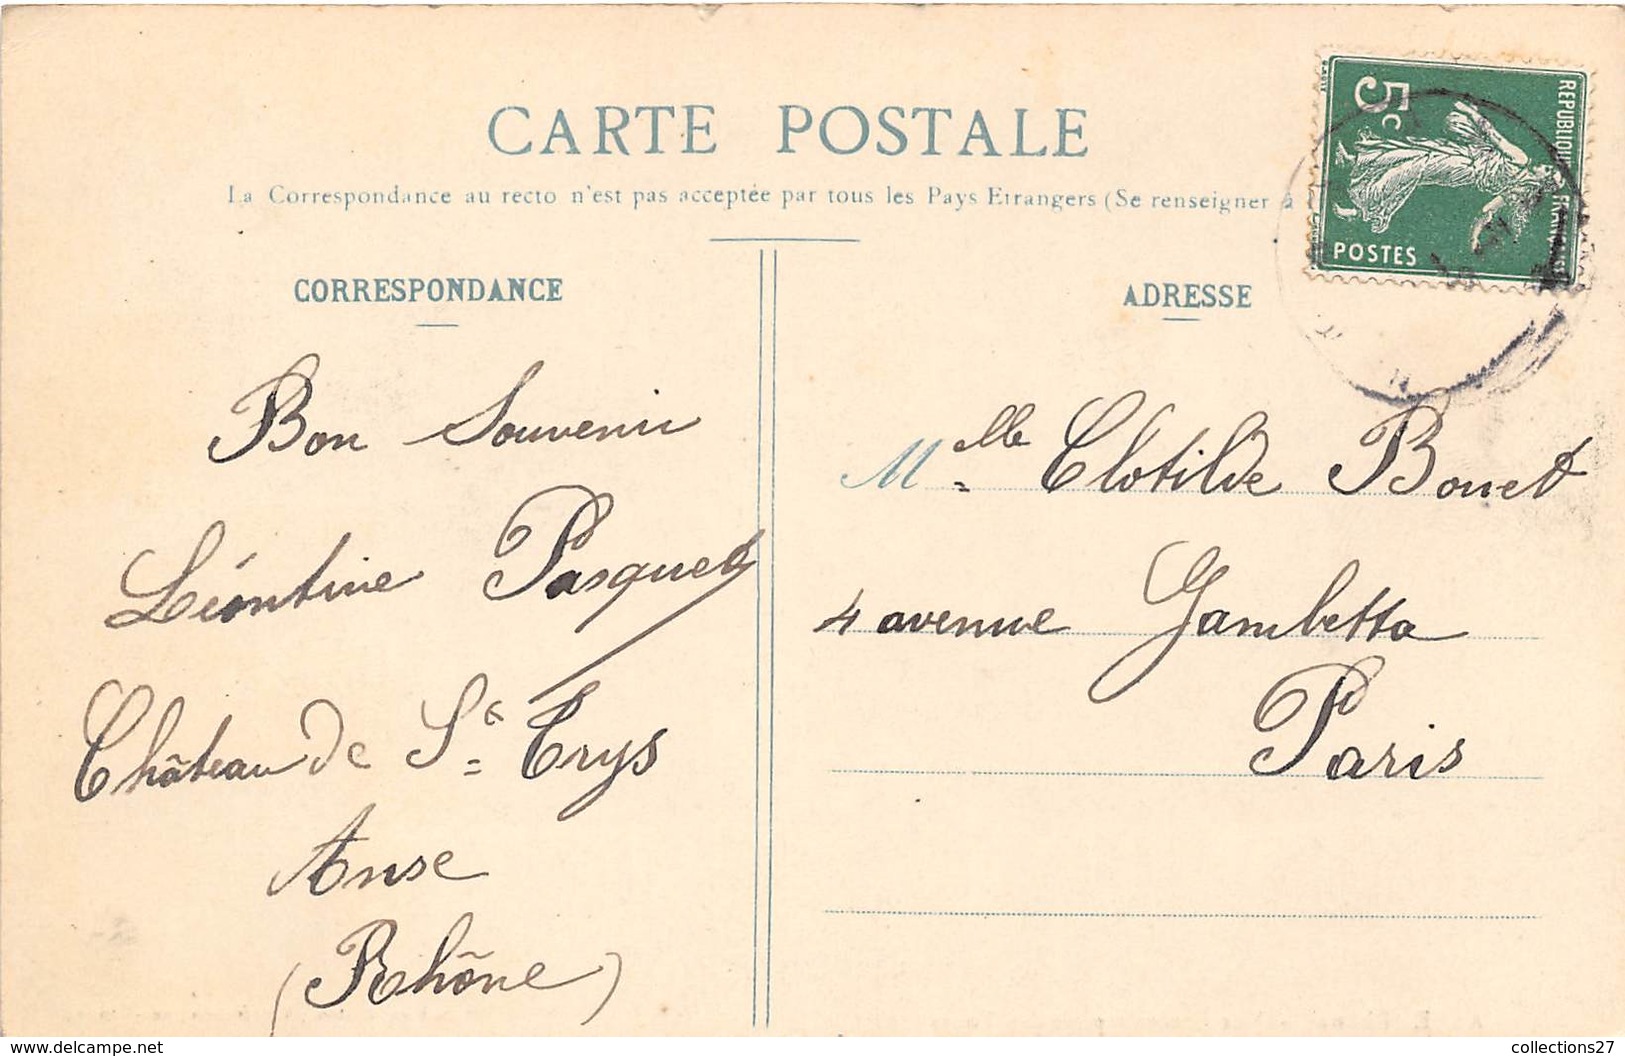 CARTE POSTALE
La Correspondance au recto n'est pas acceptée par tous les Pays Etrangers (Se renseigner à
CORRESPONDANCE
Bon Souvenir
Léontine Pasquet
Château de St Trys
Anse
(Rhône)
ADRESSE
Melle Clotilde Bonet
4 avenue Gambetta
Paris
5c
REPUBLIQUE FRANÇAISE
POSTES
delcampe.net
collections27